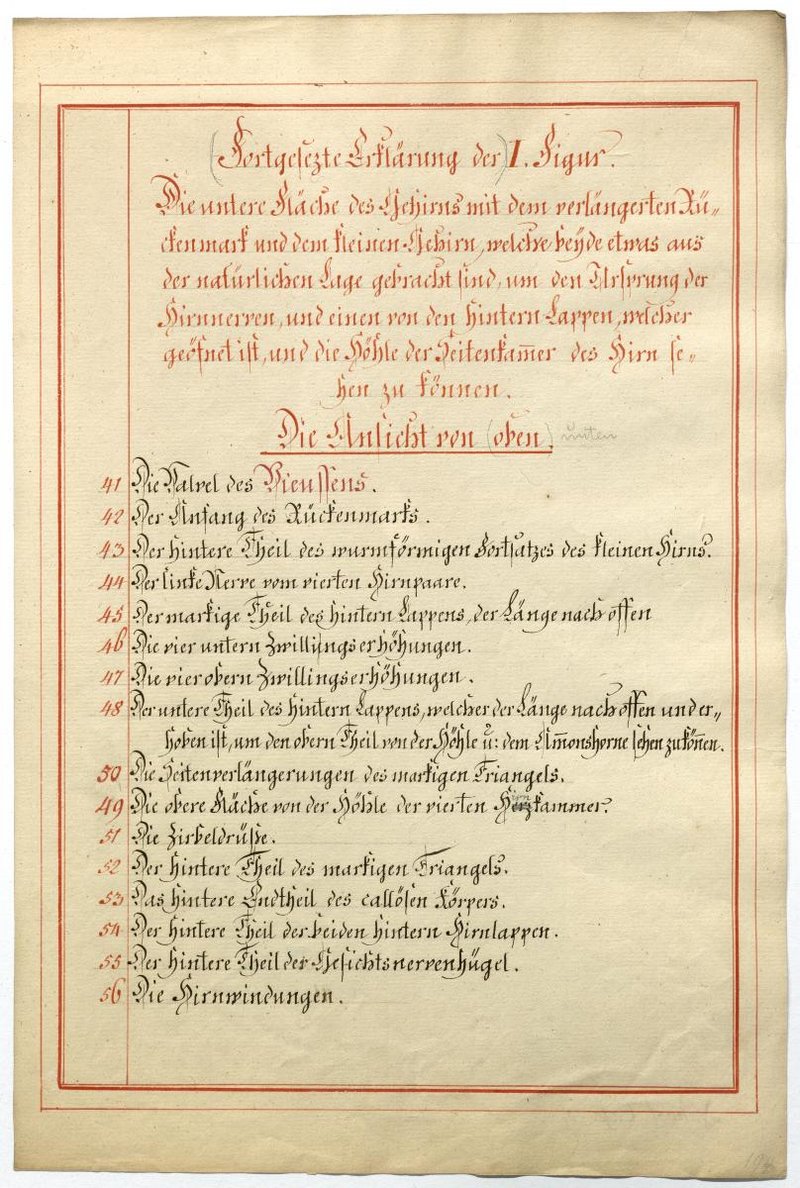 (Fortgesezte Erklärung der) I. Figur.
Die untere Fläche des Gehirns mit dem verlängerten Rü-
ckenmark und dem kleinen Gehirn, welche beyde etwas aus
der natürlichen Lage gebracht sind, um den Ursprung der
Hirnnerven, und einen von den hintern Lappen, welcher
geöfnet ist, und die Höhle der Seitenkam̅er des Hirn se-
hen zu können.
Die Ansicht von (oben). unten
41 Die Valvel des Vieussens.
42 Der Anfang des Rückenmarks.
43 Der hintere Theil des wurmförmigen Fortsatzes des kleinen Hirns.
44 Der linke Nerve vom vierten Hirnpaare.
45 Der markige Theil des hintern Lappens, der Länge nach offen
46 Die vier untern Zwillingserhöhungen.
47 Die vier obern Zwillingserhöhungen.
48 Der untere Theil des hintern Lappens, welcher der Länge nach offen und er-
hoben ist, um den obern Theil von der Höhle u: dem Am̅onshorne sehen zu kön̅en.
50 Die Seitenverlängerungen des markigen Triangels.
49 Die obere Fläche von der Höhle der vierten Hirnkammer.
51 Die Zirbeldrüße.
52 Der hintere Theil des markigen Triangels.
53 Das hintere Endtheil des callösen Körpers.
54 Der hintere Theil der beiden hintern Hirnlappen.
55 Der hintere Theil der Gesichtsnervenhügel.
56 Die Hirnwindungen.